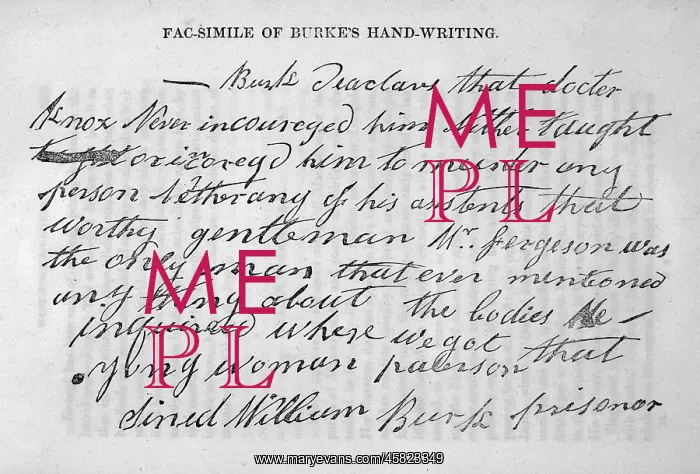 FAC-SIMILE OF BURKE'S HAND-WRITING.
— Burk deaclars that docter
Knox Never incoureged him Nither taught
or incoregd him to murder any
person Nether any of his asistents that
worthy gentleman Mr. Fergeson was
the only man that ever mentioned
any thing about the bodies He —
inquired where we got that
yong woman paterson
Sined William Burk prisonor
ME
PL
ME
PL
www.maryevans.com/45823349